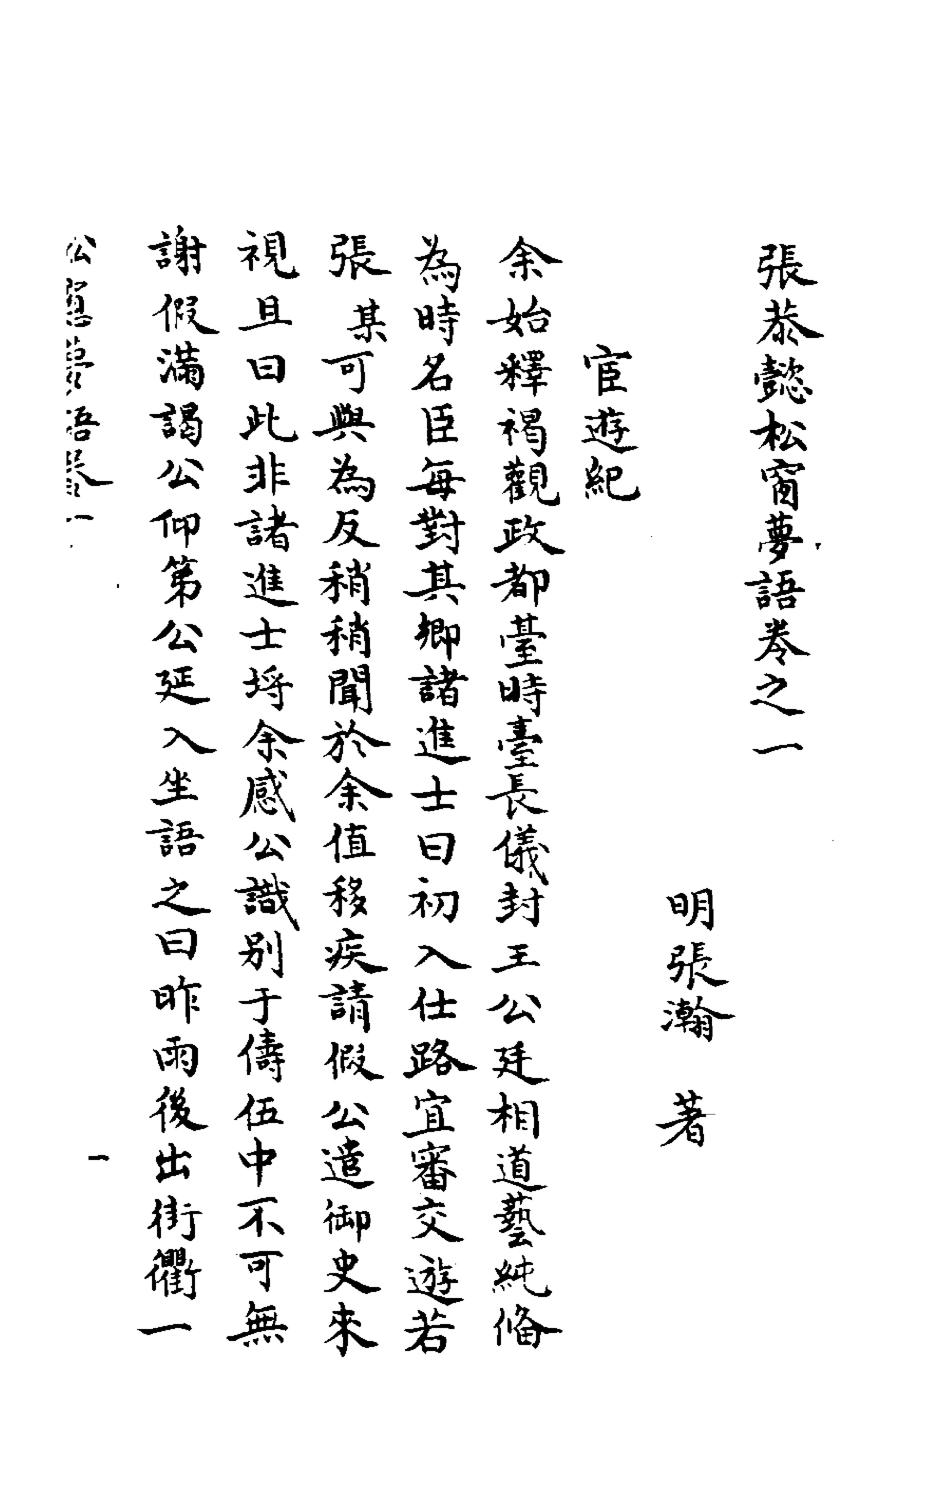 張恭懿松窗夢語卷之一
明張瀚 著
宦遊紀
余始釋褐觀政都臺時臺長儀封王公廷相道藝純俻
為時名臣每對其鄉諸進士曰初入仕路宜審交遊若
張某可與為友稍稍聞於余值移疾請假公遣御史來
視且曰此非諸進士埒余感公識別于儔伍中不可無
謝假滿謁公仰第公延入坐語之曰昨雨後出街衢一
松窗夢語卷一
一